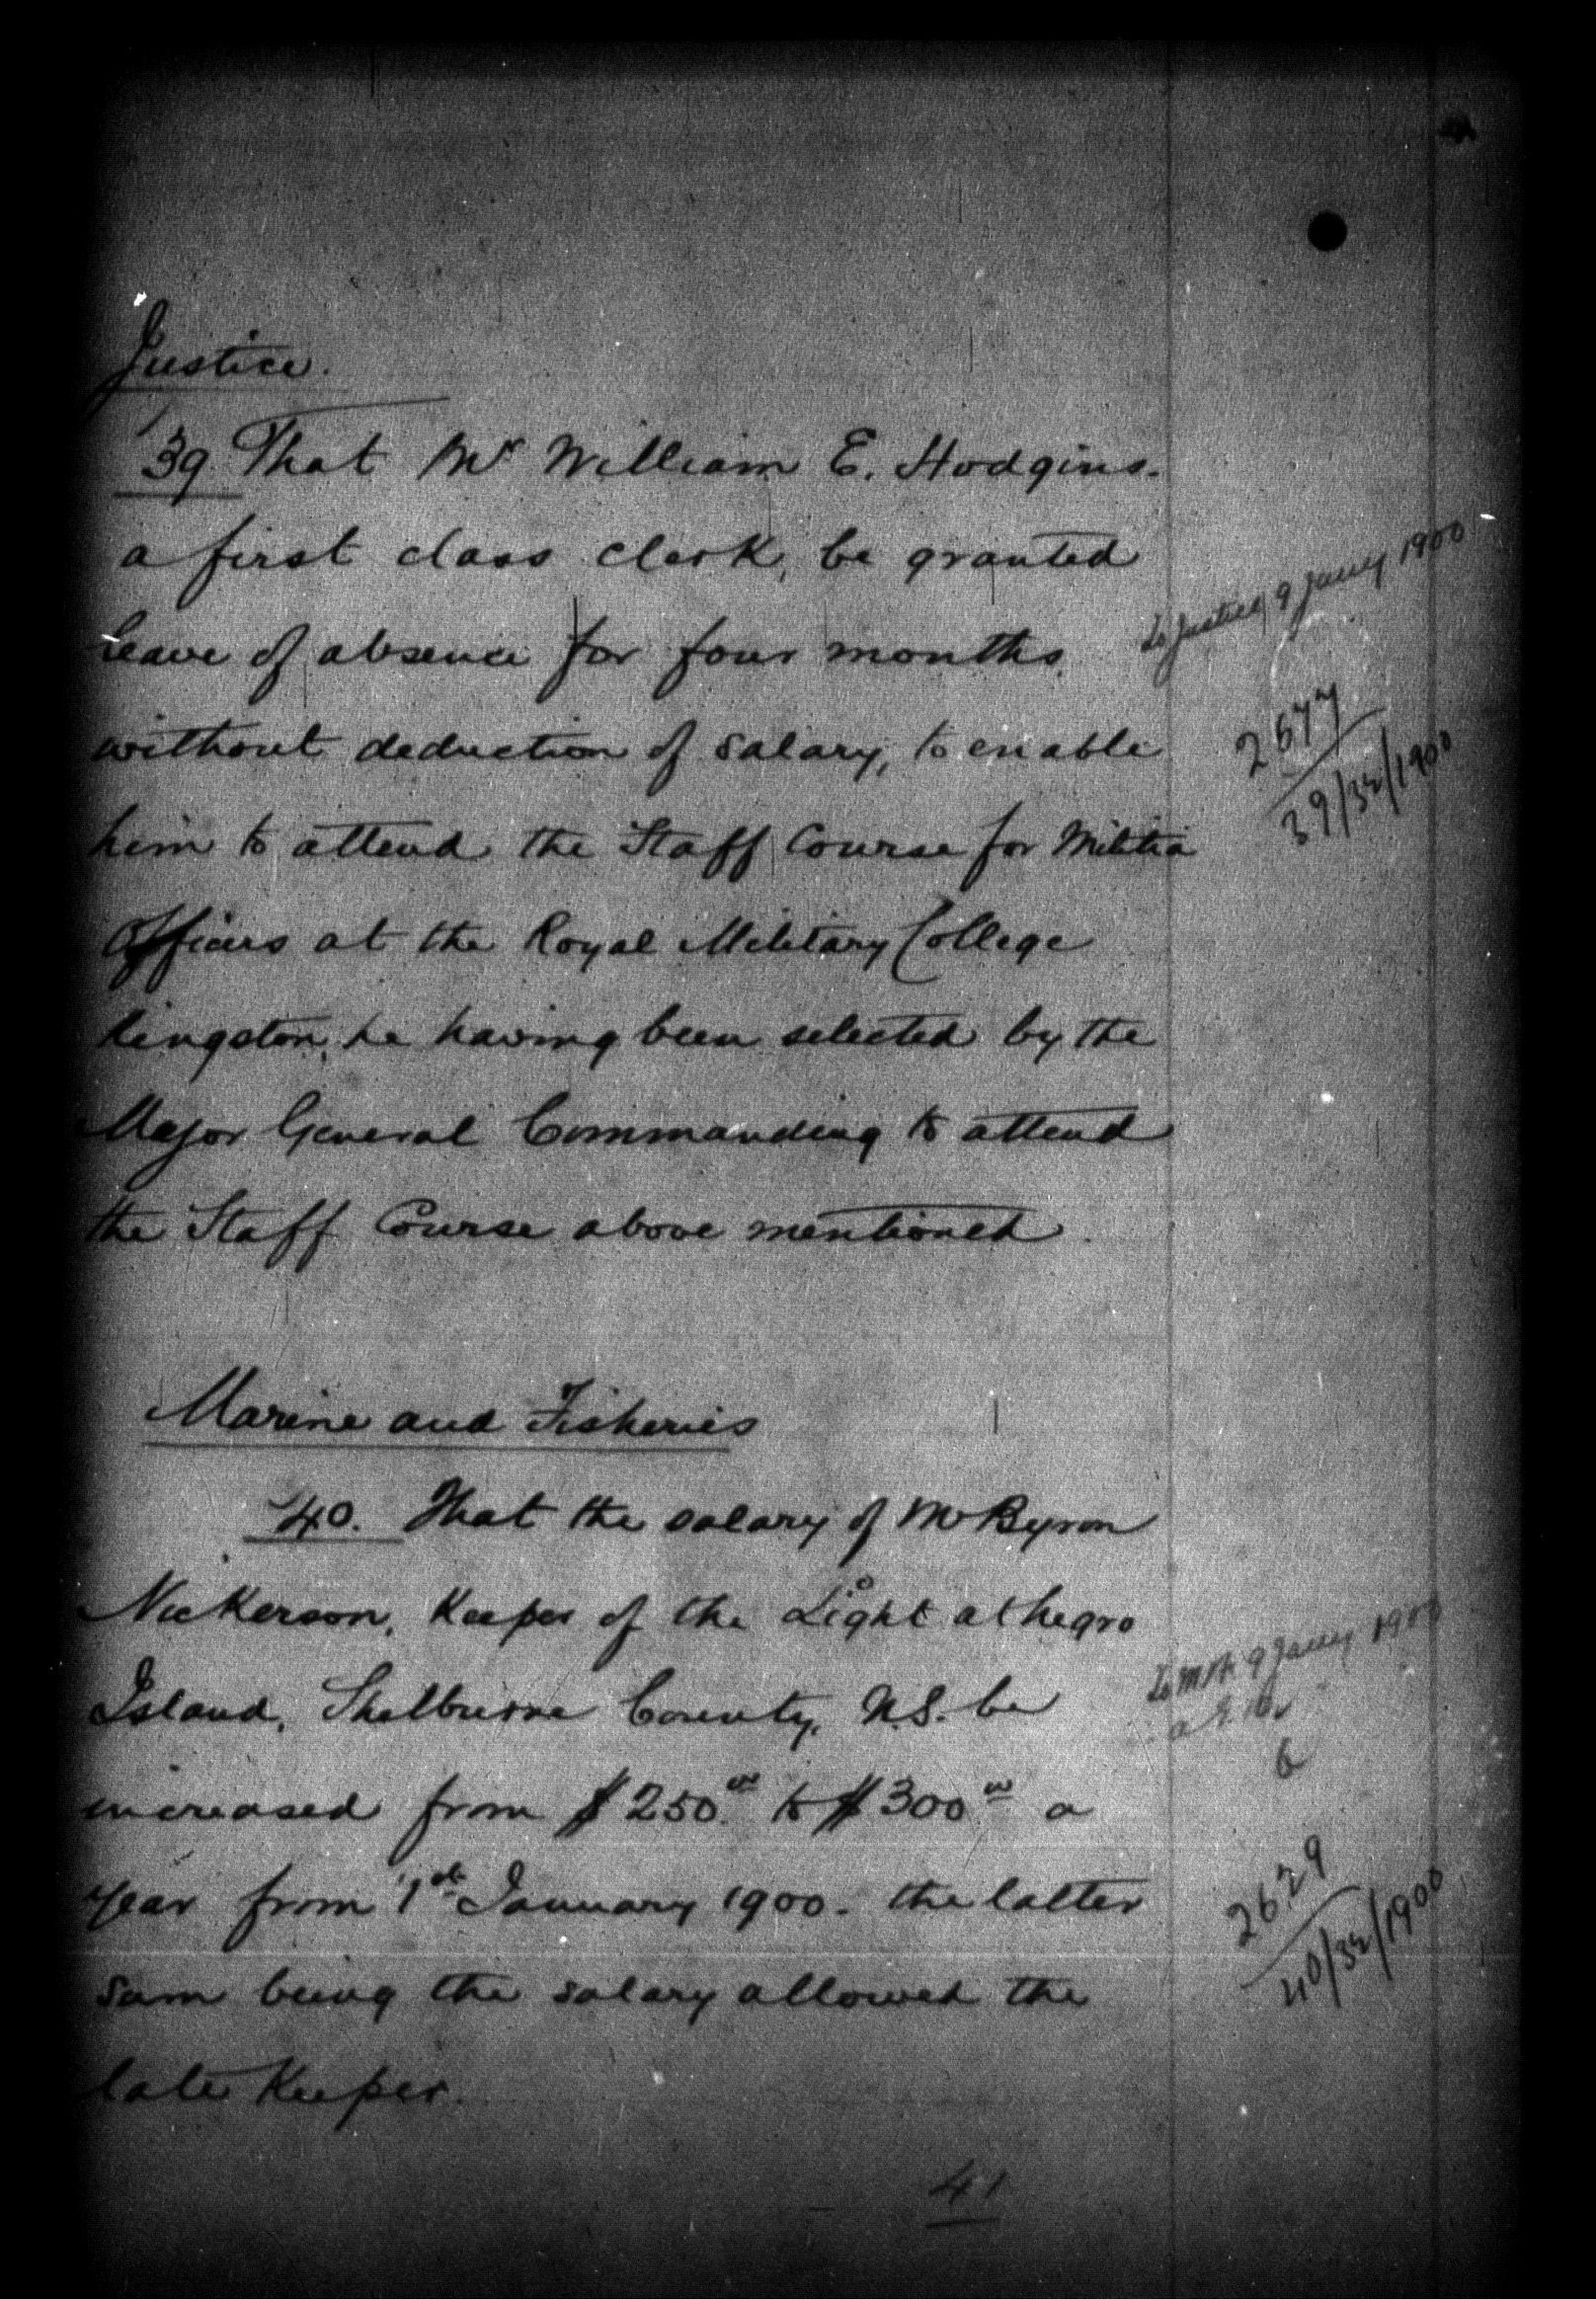 Justice.
39. That Mr William E. Hodgins.
a first class clerk, be granted
leave of absence for four months
without deduction of salary, to enable
him to attend the Staff Course for Militia
Officers at the Royal Military College
Kingston, he having been selected by the
Major General Commanding to attend
the Staff Course above mentioned.
To Justice 9 Jany 1900
39/32/1900
Marine and Fisheries
40. That the salary of Mr Byron
Nickerson, Keeper of the Light at Negro
Island, Shelburne County, N.S. be
increased from $250.00 to $300.00 a
year from 1st January 1900. the latter
sum being the salary allowed the
late Keeper.
9 Jany 1900
2629
40/32/1900
41